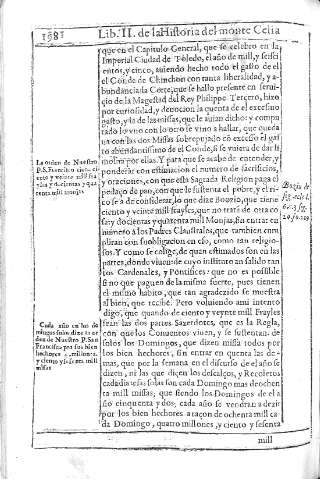 198
Lib. II. de la Historia del monte Celia
que en el Capitulo General, que se celebro en la
Imperial Ciudad de Toledo, el año de mil, y seisci
entos, y cinco, auiendo hecho todo el gasto de el
el Conde de Chinchon con tanta liberalidad, y a-
bundancia la Corte, que se hallo presente en serui-
cio de la Magestad del Rey Philippe Tercero, hizo
por curiosidad, y deuocion la quenta de el excessiuo
gasto, y la de las missas, que le auian dicho: y compu
tado lo vno con lo otro se vino a hallar, que queda
ua con las dos Missas sobrepujado en excesso el gas-
to abundantissimo de el Conde, si se vuiera de dar li
mosna por ellas. Y para que se acabe de entender, y
ponderar con estimacion el numero de sacrificios,
y oraciones, con que esta Sagrada Religion paga el
pedaço de pan, con que le sustenta el pobre, y el ri-
co se a de considerar, lo que dize Bouio, que tiene
ciento y veinte mil frayles, que no trata de otra co
sa, y docientas y quarenta mil Monjas, sin entrar en
numero los Padres Claustrales, que tambien cum
pliran con su obligacion en esso, como tan religio-
sos. Y como se colige, de quan estimados son en las
partes, donde viuen: de cuyo instituto an salido tan
tos Cardenales, y Pontifices: que no es possible
si no que paguen de la misma suerte, pues tienen
el mismo habito, que tan agradezido se muestra
al bien, que recibe. Pero voluiendo a mi intento
digo, que quando de ciento y veynte mil Frayles
sean las dos partes Sacerdotes, que es la Regla,
con que los Conuentos viuen, y se sustentan, de
solos los Domingos, que dizen missa todos por
los bien hechores, sin entrar en quenta las de-
mas, que por la semana en el discurso de el año se
dizen, ni las que dizen los descalços, y Recoletos
cada dia estas solas son cada Domingo mas de ochen
ta mil missas, que siendo los Domingos de el a
ño cinquenta y dos, cada año se vendran a dezir
por los bien hechores a raçon de ochenta mil ca-
da Domingo, quatro millones, y ciento y sesenta
mill
La orden de Nuestro
P. S. Francisco tiene ci
ento y veinte mil fra
yles y docientas y qua
renta mil monjas
Cada año en los do
mingos solos dize la or
den de Nuestro P. San
Francisco por sus bien
hechores 4. millones,
y ciento y sesenta mill
missas